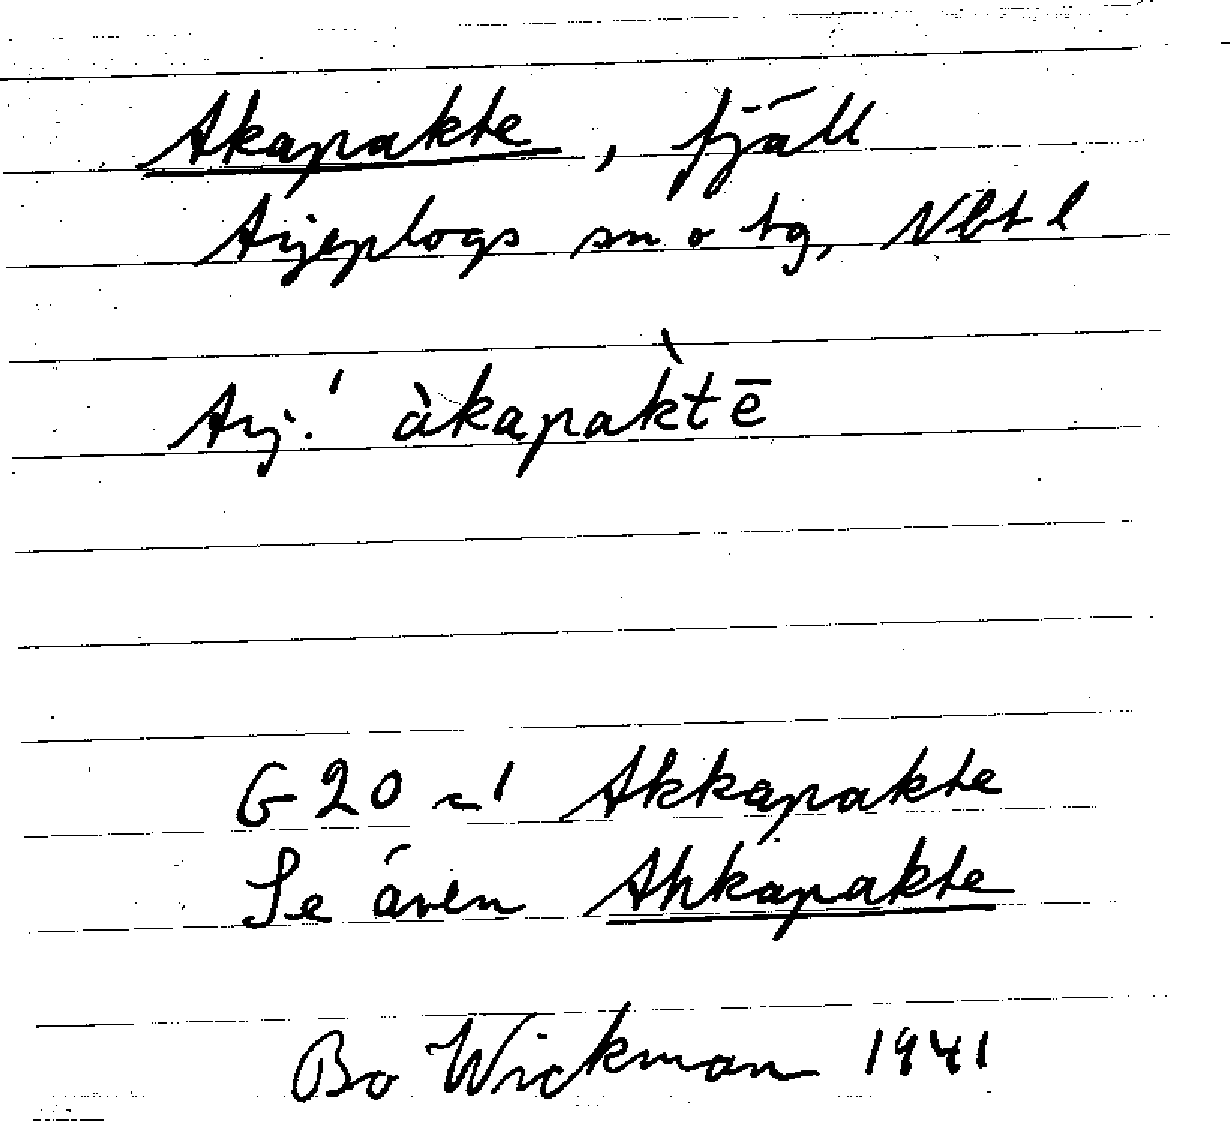 Akapakte, fjäll
Arjeplogs sn o tg, Vbt l
Arj.' àkapak̀tē
G20 Akkapakte
Se även Ahkapakte
Bo Wickman 1941